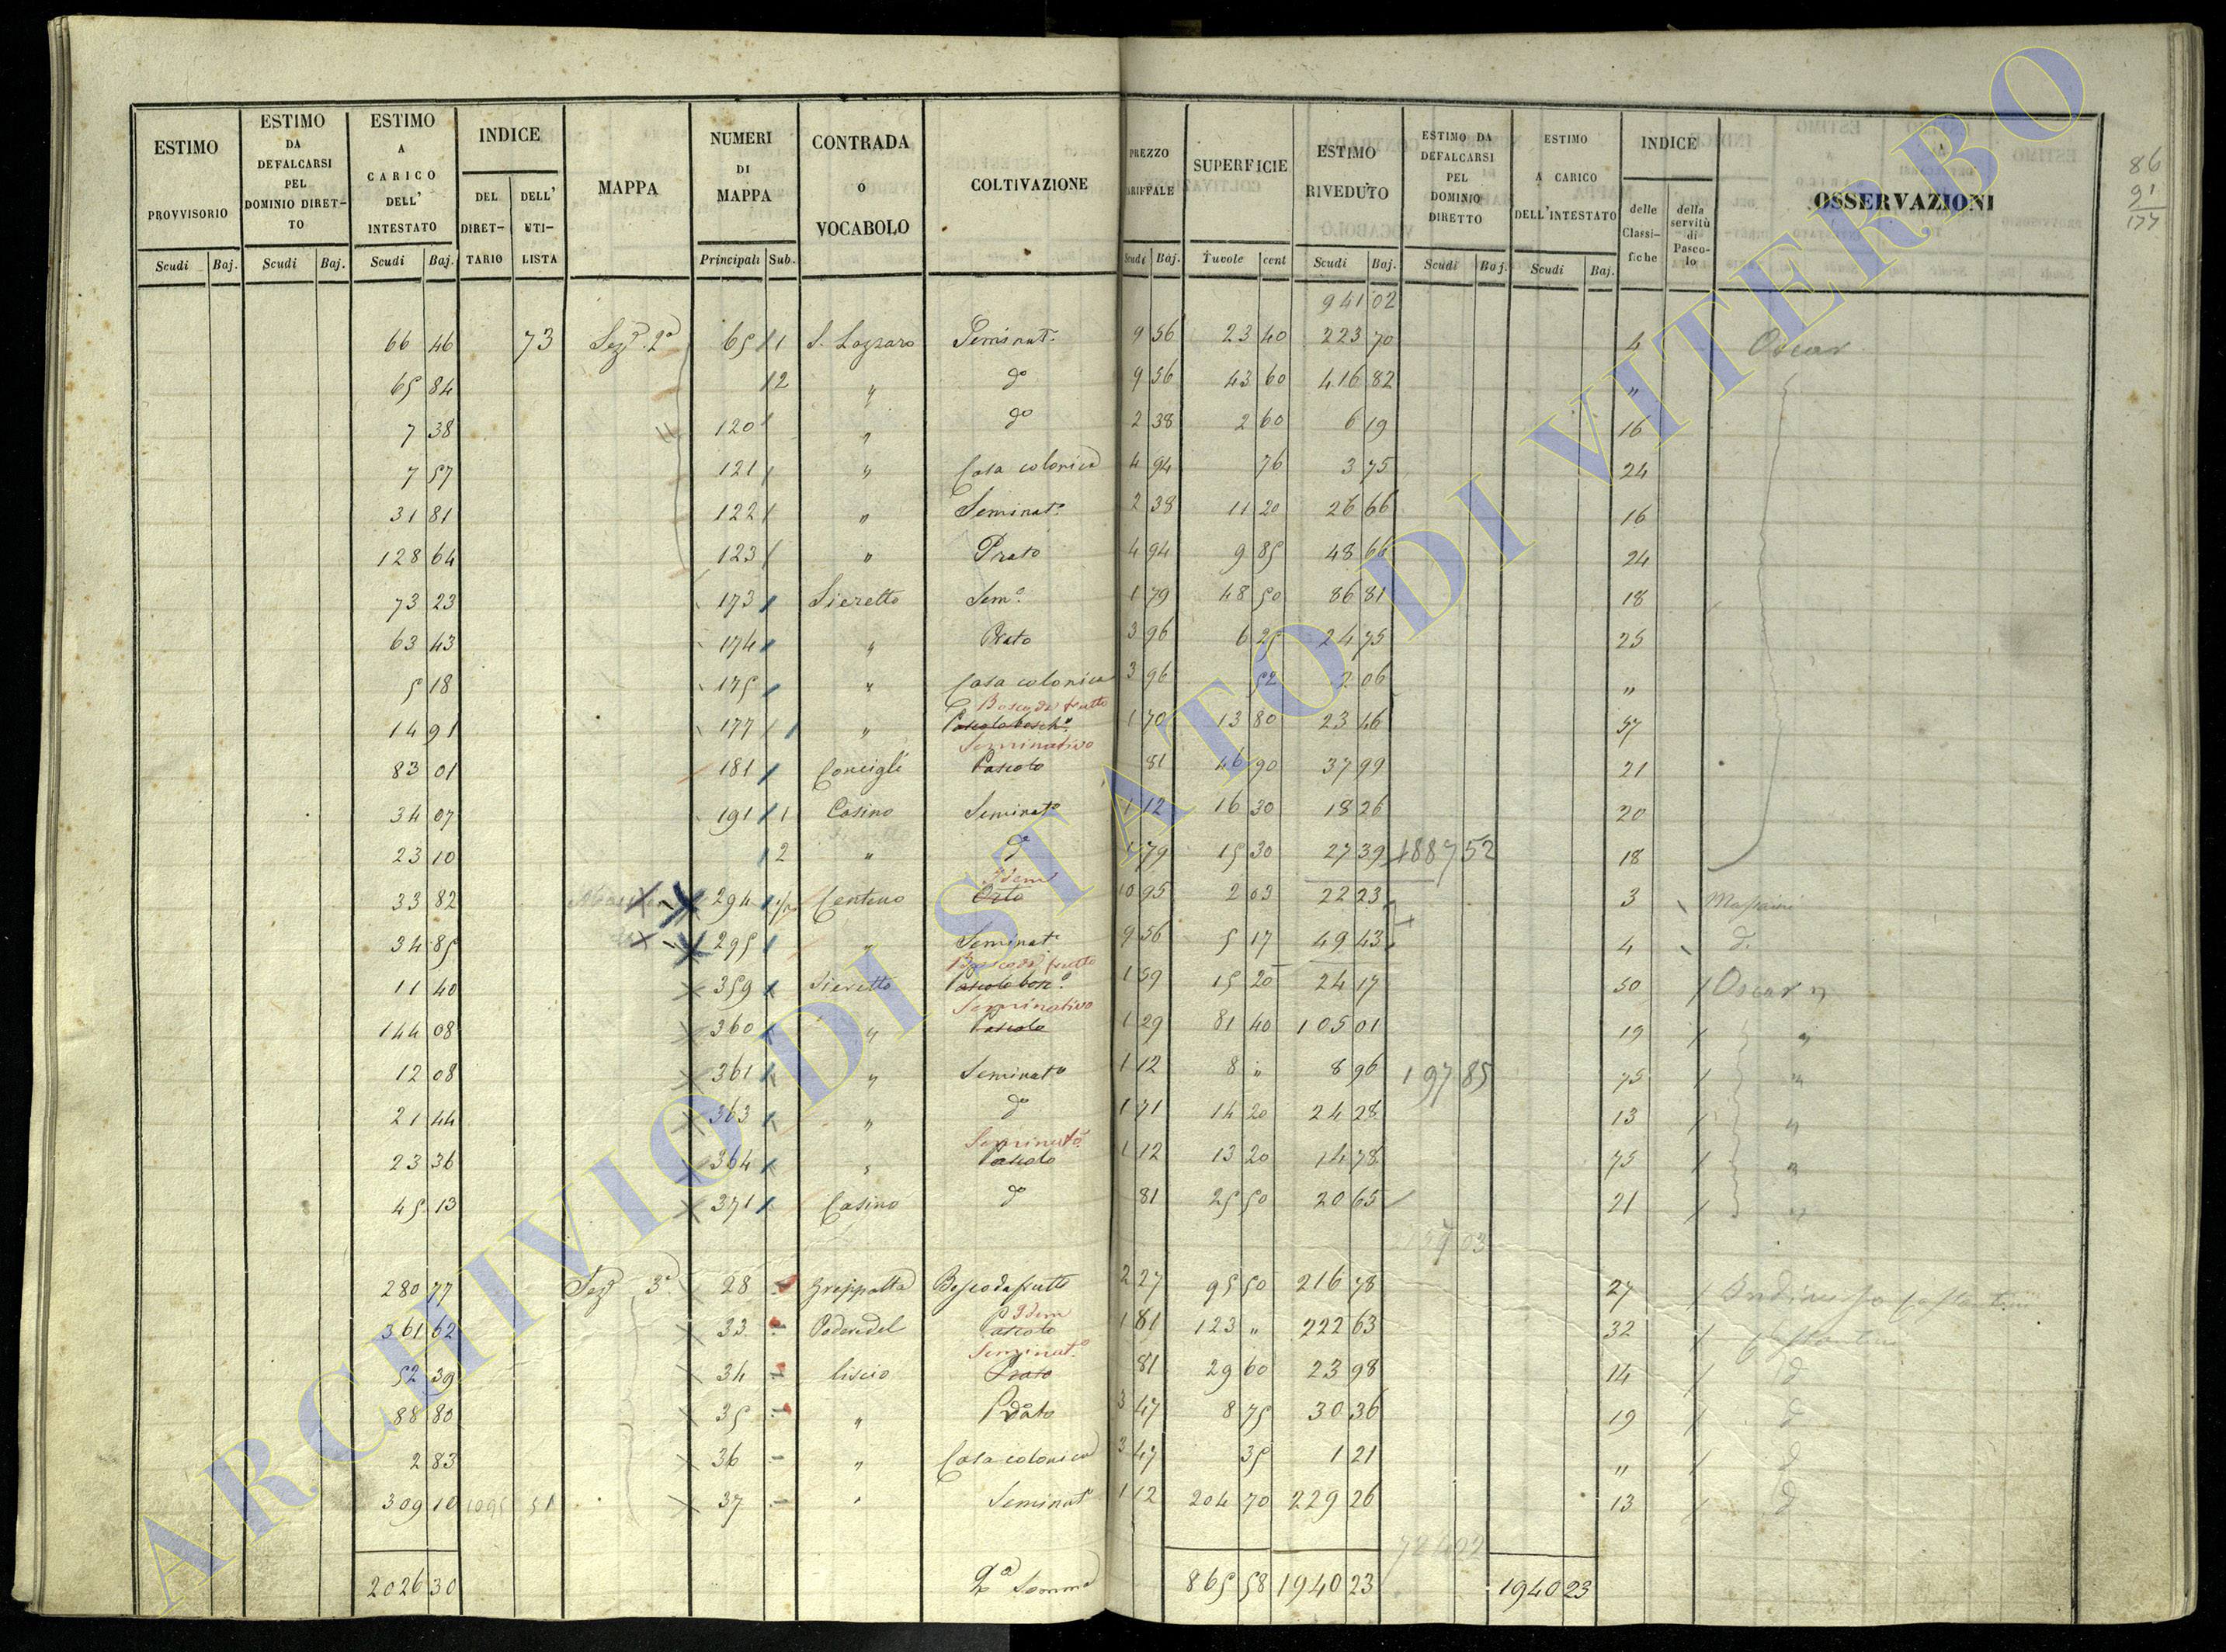 ESTIMO PROVVISORIO
ESTIMO DA DEFALCARSI PEL DOMINIO DIRET-TO
ESTIMO A CARICO DELL' INTESTATO
INDICE
DEL DIRET-TARIO
DELL' UTI-LISTA
MAPPA
NUMERI DI MAPPA
CONTRADA O VOCABOLO
COLTIVAZIONE
PREZZO
SUPERFICIE
ESTIMO RIVEDUTO
ESTIMO DA DEFALCARSI PEL DOMINIO DIRETTO
ESTIMO A CARICO DELL'INTESTATO
INDICE
delle Classi-fiche
della servitù di Pasco-lo
OSSERVAZIONI
86
91
177
Scudi Baj. Scudi Baj. Scudi Baj. Principali Sub. Scudi Baj. Tavole cent Scudi Baj. Scudi Baj. Scudi Baj.
941 02
66 46 73 Sez.e 2a 65 1 S. Lazzaro Seminat.o 9 56 23 40 223 70 4 Oscar
65 84 2 " do 9 56 43 60 416 82 "
7 38 120 " do 2 38 2 60 6 19 16
7 57 121 " Casa colonica 4 94 76 3 75 24
31 81 122 " Seminat.o 2 38 11 20 26 66 16
128 64 123 " Prato 4 94 9 85 48 66 24
73 23 173 Sieretto Sem.o 1 79 48 50 86 81 18
63 43 174 " Prato 3 96 6 25 24 75 25
5 18 175 " Casa colonica 3 96 52 2 06 "
Bosco da frutto
14 91 177 " Pascolo bosch.o 1 70 13 80 23 46 57
Seminativo
83 01 181 Pascolo 81 46 90 37 99 21
34 07 191 1 Casino Seminat.o 1 12 16 30 18 26 20
23 10 2 " do 1 79 15 30 27 39 1887 52 18
Idem
33 82 294 Centeno Orto 10 95 2 03 22 23 3
34 85 295 " Seminat.o 9 56 5 17 49 43 4 d.
Bosco da frutto
11 40 359 Sieretto Pascolo bosc.o 1 59 15 20 24 17 50 Oscar "
Seminativo
144 08 360 " Pascolo 1 29 81 40 105 01 19 "
12 08 361 " Seminat.o 1 12 8 " 8 96 197 85 75 "
21 44 363 " do 1 71 14 20 24 28 13 "
Seminat.o
23 36 364 " Pascolo 1 12 13 20 14 78 75 "
45 13 371 Casino do 81 25 50 20 65 21 "
280 77 Sez.e 3a 28 Bosco da frutto 2 27 95 50 216 78 27
Idem
361 62 33 Podere del Pascolo 1 81 123 " 222 63 32
Seminat.o
52 39 34 liscio Prato 81 29 60 23 98 14 d
88 80 35 " Prato 3 47 8 75 30 36 19 d
2 83 36 " Casa colonica 3 47 35 1 21 " d
309 10 37 " Seminat.o 1 12 204 70 229 26 13 d
2026 30 2a Somma 865 58 1940 23 1940 23
ARCHIVIO DI STATO DI VITERBO